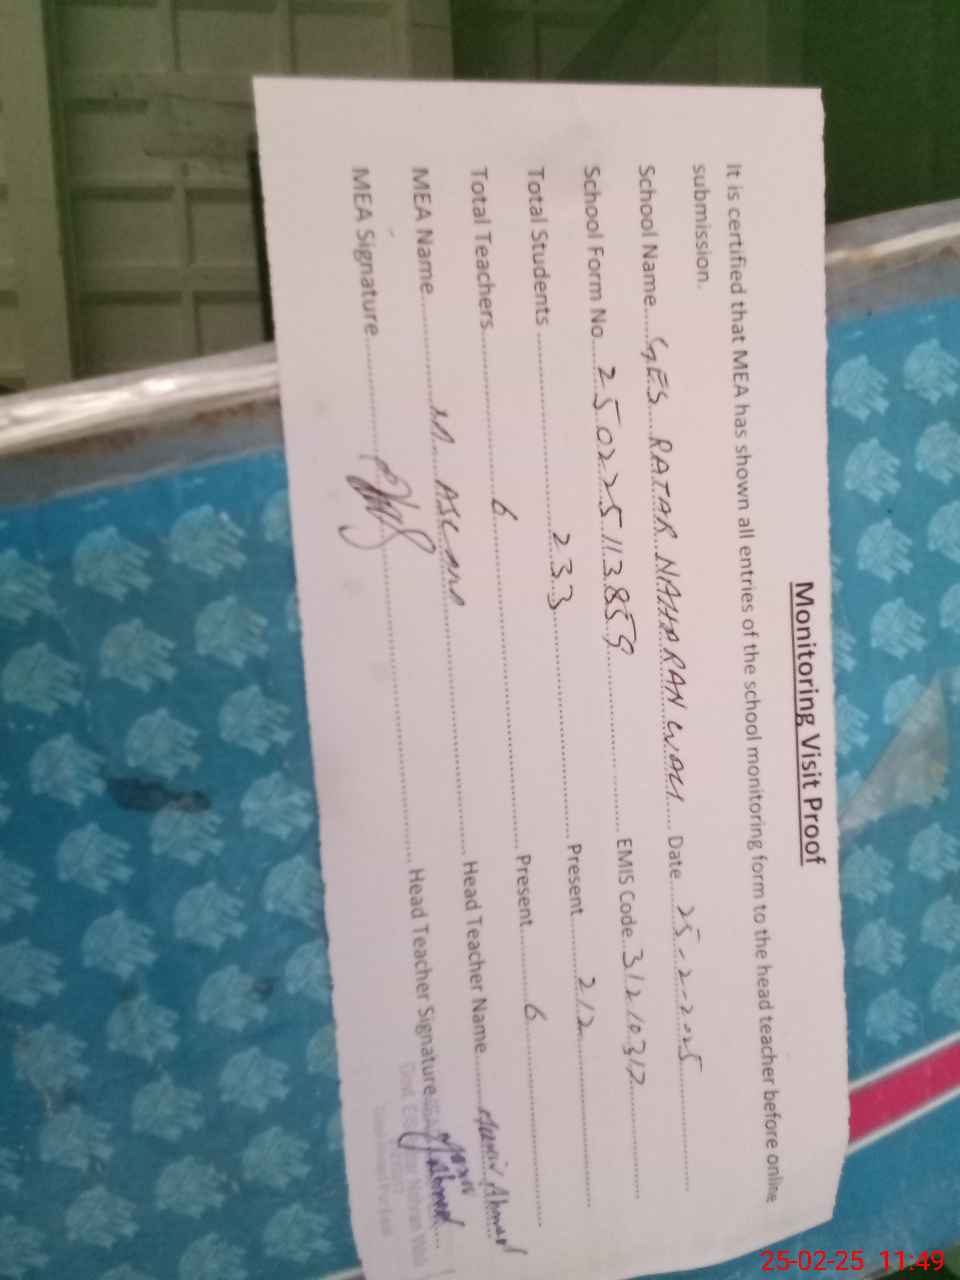 Monitoring Visit Proof
It is certified that MEA has shown all entries of the school monitoring form to the head teacher before online
submission.
School Name......GES RATAR NAHARAN WALI.... Date.....25-2-2025
School Form No....250225113859........ EMIS Code..31210312
Total Students ........233........ Present........212
Total Teachers........6........ Present........6
MEA Name........M. ASLAM........ Head Teacher Name........ Ahmad
MEA Signature........ Head Teacher Signature
25-02-25 11:49